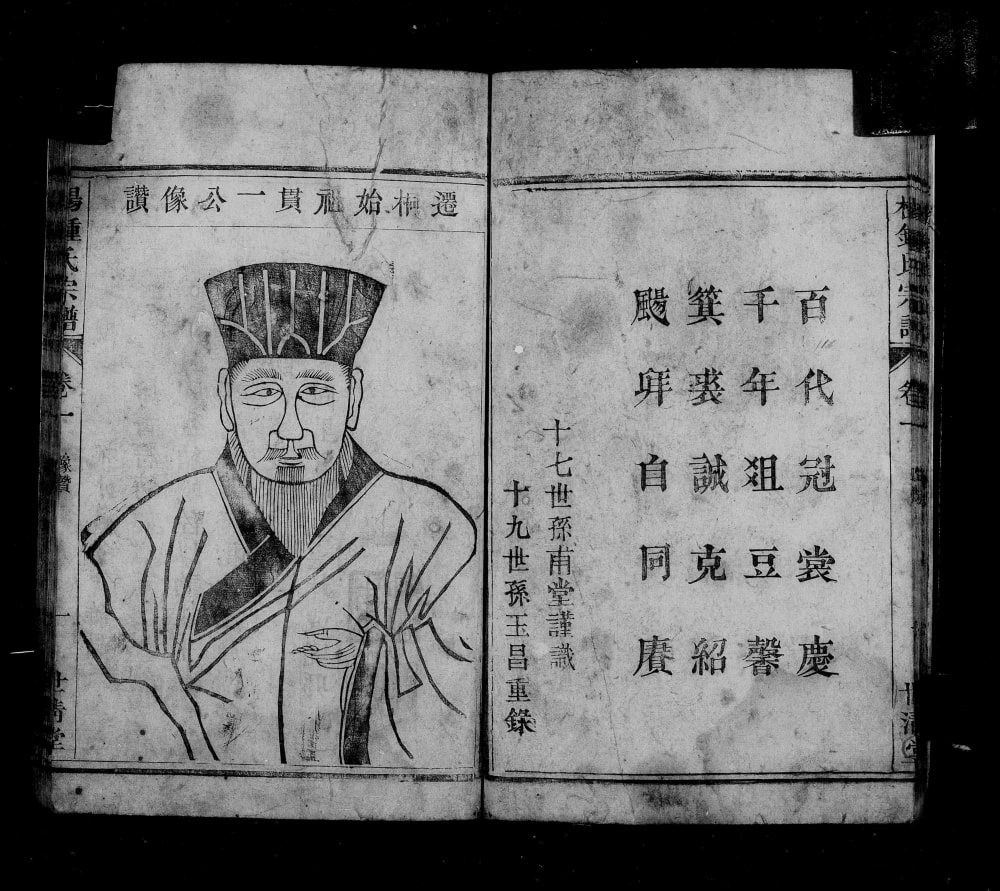 桐鍾氏宗譜
卷一
世清堂
百代冠裳慶
千年爼豆馨
箕裘誠克紹
颺拜自同賡
十七世孫甫堂謹識
十九世孫玉昌重錄
遷桐始祖貫一公像讚
陽鍾氏宗譜
卷一
像讚
一
世清堂